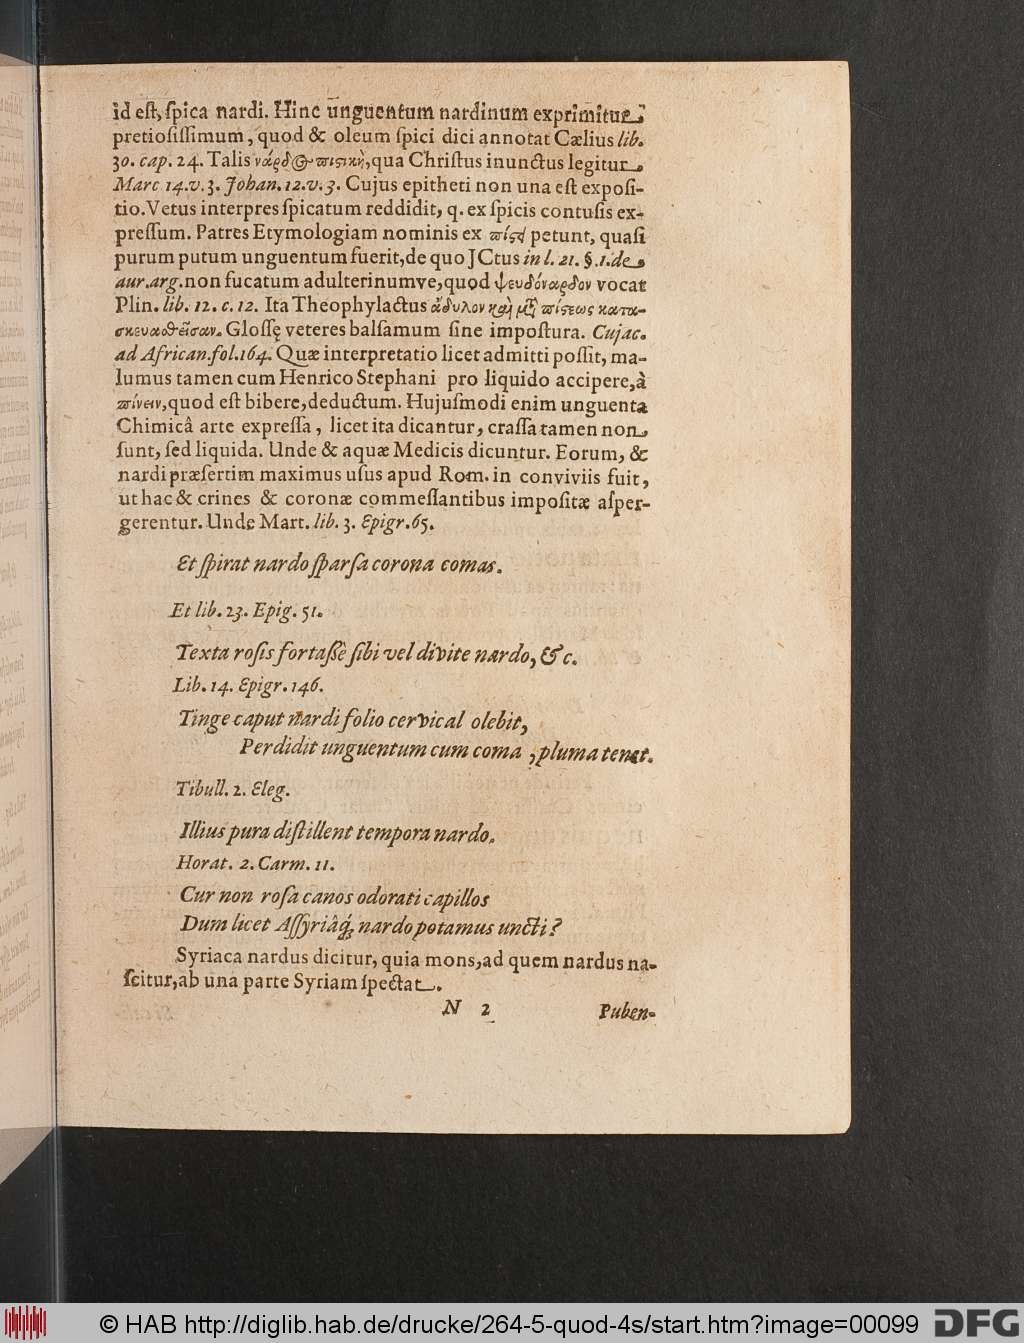 id est, spica nardi. Hinc unguentum nardinum exprimitur
pretiosissimum, quod & oleum spici dici annotat Cælius lib.
30. cap. 24. Talis νάρδος πιστικὴ, qua Christus inunctus legitur
Marc 14.v.3. Johan.12.v.3. Cujus epitheti non una est exposi-
tio. Vetus interpres spicatum reddidit, q. ex spicis contusis ex-
pressum. Patres Etymologiam nominis ex πίστ petunt, quasi
purum putum unguentum fuerit, de quo JCtus in l. 21. §.1.de
aur.arg. non fucatum adulterinumve, quod ψευδόναρδον vocat
Plin. lib. 12. c. 12. Ita Theophylactus ἄδυλον καὶ μετὰ πίστεως κατα-
σκευασθεῖσαν. Glossę veteres balsamum sine impostura. Cujac.
ad African.fol.164. Quæ interpretatio licet admitti possit, ma-
lumus tamen cum Henrico Stephani pro liquido accipere, à
πίνειν, quod est bibere, deductum. Hujusmodi enim unguenta
Chimicâ arte expressa, licet ita dicantur, crassa tamen non
sunt, sed liquida. Unde & aquæ Medicis dicuntur. Eorum, &
nardi præsertim maximus usus apud Rom. in conviviis fuit,
ut hac & crines & coronæ commessantibus impositæ asper-
gerentur. Unde Mart. lib. 3. Epigr.65.
Et spirat nardo sparsa corona comas.
Et lib. 23. Epig. 51.
Texta rosis fortassè sibi vel divite nardo, &c.
Lib. 14. Epigr. 146.
Tinge caput nardi folio cervical olebit,
Perdidit unguentum cum coma, pluma tenet.
Tibull. 2. Eleg.
Illius pura distillent tempora nardo.
Horat. 2. Carm. 11.
Cur non rosa canos odorati capillos
Dum licet Assyriâq; nardo potamus uncti?
Syriaca nardus dicitur, quia mons, ad quem nardus na-
scitur, ab una parte Syriam spectat.
N 2 Puben-
© HAB http://diglib.hab.de/drucke/264-5-quod-4s/start.htm?image=00099 DFG